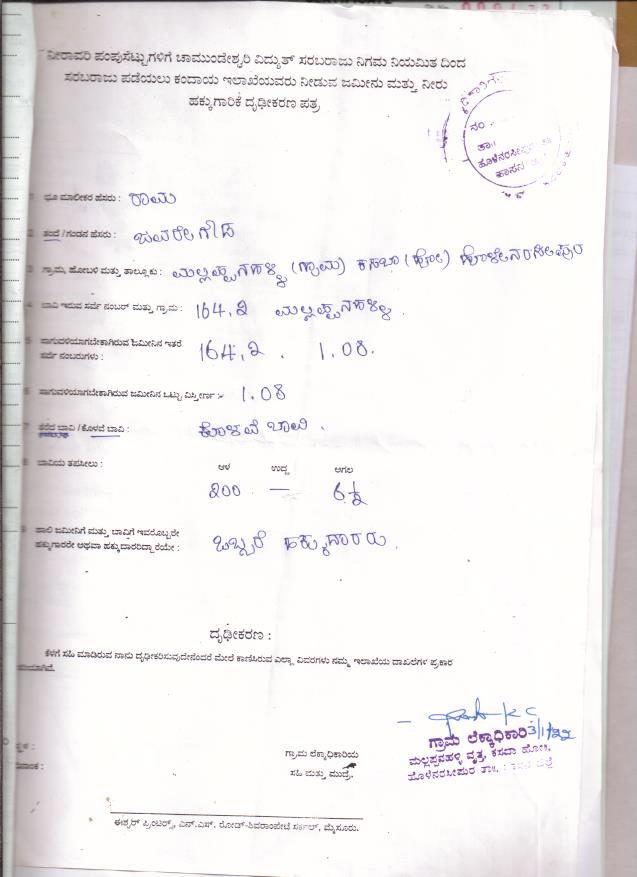 ನೀರಾವರಿ ಪಂಪುಸೆಟ್ಟುಗಳಿಗೆ ಚಾಮುಂಡೇಶ್ವರಿ ವಿದ್ಯುತ್ ಸರಬರಾಜು ನಿಗಮ ನಿಯಮಿತ ದಿಂದ
ಸರಬರಾಜು ಪಡೆಯಲು ಕಂದಾಯ ಇಲಾಖೆಯವರು ನೀಡುವ ಜಮೀನು ಮತ್ತು ನೀರು
ಹಕ್ಕುಗಾರಿಕೆ ದೃಢೀಕರಣ ಪತ್ರ
ನಂ.
ತಾ॥
ಹೊಳೆನರಸೀಪುರ ತಾ॥
ಹಾಸನ
1 ಭೂ ಮಾಲೀಕರ ಹೆಸರು : ರಾಮ
2 ತಂದೆ / ಗಂಡನ ಹೆಸರು : ಜವರೇಗೌಡ
3 ಗ್ರಾಮ, ಹೋಬಳಿ ಮತ್ತು ತಾಲ್ಲೂಕು : ಮಲ್ಲಪ್ಪನಹಳ್ಳಿ (ಗ್ರಾಮ) ಕಸಬಾ (ಹೋ) ಹೊಳೇನರಸೀಪುರ
4 ಬಾವಿ ಇರುವ ಸರ್ವೆ ನಂಬರ್ ಮತ್ತು ಗ್ರಾಮ : 164.2 ಮಲ್ಲಪ್ಪನಹಳ್ಳಿ.
5 ಸಾಗುವಳಿಯಾಗಬೇಕಾಗಿರುವ ಜಮೀನಿನ ಇತರೆ
ಸರ್ವೆ ನಂಬರುಗಳು : 164.2. 1.08.
6 ಸಾಗುವಳಿಯಾಗಬೇಕಾಗಿರುವ ಜಮೀನಿನ ಒಟ್ಟು ವಿಸ್ತೀರ್ಣ :- 1.08
7 ತೆರೆದ ಬಾವಿ / ಕೊಳವೆ ಬಾವಿ : ಕೊಳವೆ ಬಾವಿ.
8 ಬಾವಿಯ ತಪಸೀಲು : ಆಳ ಉದ್ದ ಅಗಲ
200 — 6½
9 ಹಾಲಿ ಜಮೀನಿಗೆ ಮತ್ತು ಬಾವಿಗೆ ಇವರೊಬ್ಬರೇ
ಹಕ್ಕುಗಾರರೇ ಅಥವಾ ಹಕ್ಕುದಾರರಿದ್ದಾರೆಯೇ : ಒಬ್ಬರೆ ಹಕ್ಕುದಾರರು.
ದೃಢೀಕರಣ :
ಕೆಳಗೆ ಸಹಿ ಮಾಡಿರುವ ನಾನು ದೃಢೀಕರಿಸುವುದೇನೆಂದರೆ ಮೇಲೆ ಕಾಣಿಸಿರುವ ಎಲ್ಲಾ ವಿವರಗಳು ನಮ್ಮ ಇಲಾಖೆಯ ದಾಖಲೆಗಳ ಪ್ರಕಾರ
K C
3/1/22
ಗ್ರಾಮ ಲೆಕ್ಕಾಧಿಕಾರಿ
ಮಲ್ಲಪ್ಪನಹಳ್ಳಿ ವೃತ್ತ, ಕಸಬಾ ಹೋ,
ಹೊಳೆನರಸೀಪುರ ತಾ॥, ಹಾಸನ ಜಿಲ್ಲೆ
ಗ್ರಾಮ ಲೆಕ್ಕಾಧಿಕಾರಿಯ
ಸಹಿ ಮತ್ತು ಮುದ್ರೆ.
ಈಶ್ವರ್ ಪ್ರಿಂಟರ್ಸ್, ಎನ್.ಎಸ್. ರೋಡ್-ಶಿವರಾಂಪೇಟೆ ಸರ್ಕಲ್, ಮೈಸೂರು.